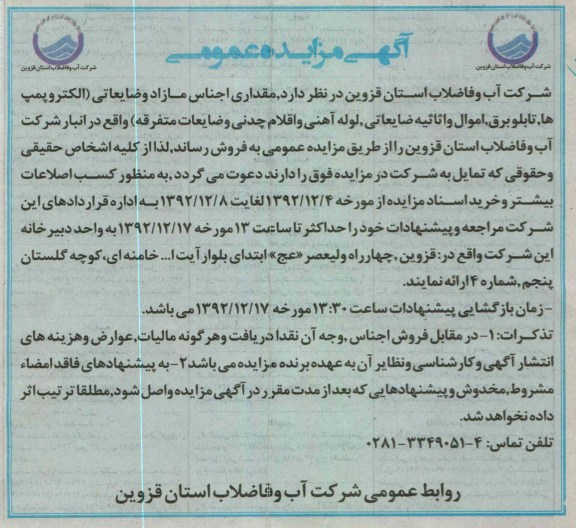 آگهی مزایده عمومی
شرکت آب و فاضلاب استان قزوین
شرکت آب و فاضلاب استان قزوین
شرکت آب و فاضلاب استان قزوین در نظر دارد, مقداری اجناس مازاد و ضایعاتی (الکتروپمپ
ها, تابلو برق, اموال و اثاثیه ضایعاتی, لوله آهنی و اقلام چدنی و ضایعات متفرقه) واقع در انبار شرکت
آب و فاضلاب استان قزوین را از طریق مزایده عمومی به فروش رساند, لذا از کلیه اشخاص حقیقی
و حقوقی که تمایل به شرکت در مزایده فوق را دارند دعوت می گردد, به منظور کسب اصلاعات
بیشتر و خرید اسناد مزایده از مورخه ۱۳۹۲/۱۲/۴ لغایت ۱۳۹۲/۱۲/۸ به اداره قراردادهای این
شرکت مراجعه و پیشنهادات خود را حداکثر تا ساعت ۱۳ مورخه ۱۳۹۲/۱۲/۱۷ به واحد دبیرخانه
این شرکت واقع در: قزوین, چهارراه ولیعصر «عج» ابتدای بلوار آیت ا... خامنه ای, کوچه گلستان
پنجم, شماره ۴ ارائه نمایند.
- زمان بازگشایی پیشنهادات ساعت ۱۳:۳۰ مورخه ۱۳۹۲/۱۲/۱۷ می باشد.
تذکرات: ۱- در مقابل فروش اجناس, وجه آن نقدا دریافت و هرگونه مالیات, عوارض و هزینه های
انتشار آگهی و کارشناسی و نظایر آن به عهده برنده مزایده می باشد ۲- به پیشنهادهای فاقد امضاء
مشروط, مخدوش و پیشنهادهایی که بعد از مدت مقرر در آگهی مزایده واصل شود, مطلقا ترتیب اثر
داده نخواهد شد.
تلفن تماس: ۴-۳۳۴۹۰۵۱-۰۲۸۱
روابط عمومی شرکت آب و فاضلاب استان قزوین